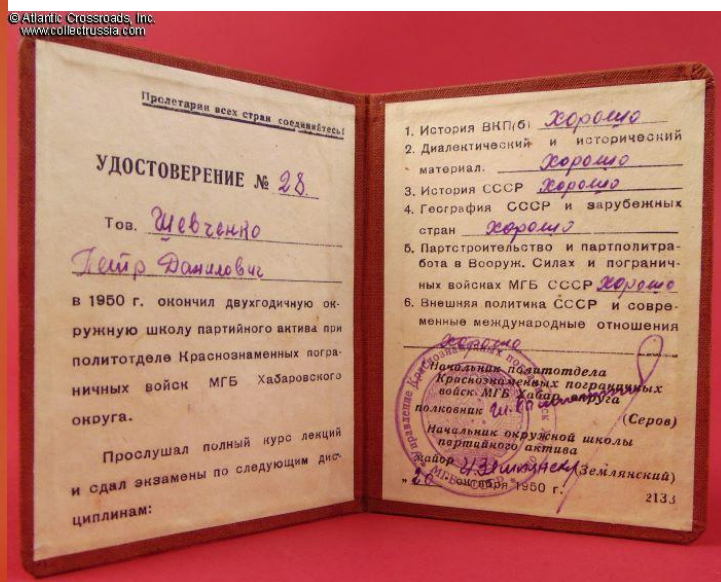 © Atlantic Crossroads, Inc.
www.collectrussia.com
Пролетарии всех стран соединяйтесь!
УДОСТОВЕРЕНИЕ № 28.
Тов. Шевченко
Петр Данилович
в 1950 г. окончил двухгодичную ок-
ружную школу партийного актива при
политотделе Краснознаменных погра-
ничных войск МГБ Хабаровского
округа.
Прослушал полный курс лекций
и сдал экзамены по следующим дис-
циплинам:
1. История ВКП(б) Хорошо
2. Диалектический и исторический
материал. Хорошо
3. История СССР Хорошо
4. География СССР и зарубежных
стран Хорошо
5. Партстроительство и партполитра-
бота в Вооруж. Силах и погранич-
ных войсках МГБ СССР Хорошо
6. Внешняя политика СССР и совре-
менные международные отношения
Хорошо
Начальник политотдела
Краснознаменных пограничных
войск МГБ Хабар. округа
полковник
(Серов)
Начальник окружной школы
партийного актива
майор (Землянский)
"20" 1950 г.
2133